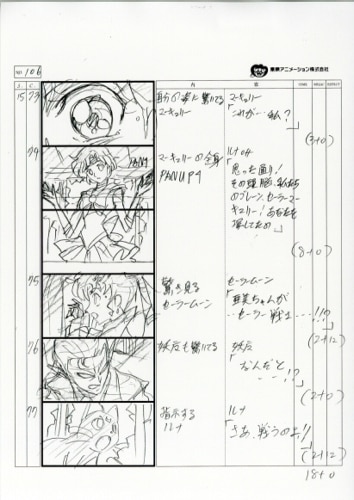 NO. 106
東映アニメーション株式会社
S. C. 内 容
15 73 自分の姿に驚いてる マーキュリー
マーキュリー 「これが…私?」
(3+0)
74 マーキュリーの全身 ルナoff
PANUP4 「思った通り!
その頭脳、私たち
のブレーン、セーラーマー
キュリー!あなたを
探してたの」
PAN4
(8+0)
75 驚き見る セーラームーン
セーラームーン 「亜美ちゃんが
セーラー戦士…!!?」
(2+12)
76 妖魔も驚いてる 妖魔
「なんだと
…!?」
(2+0)
77 指示する ルナ
ルナ 「さあ、戦うのよ!!」
(2+12)
18+0